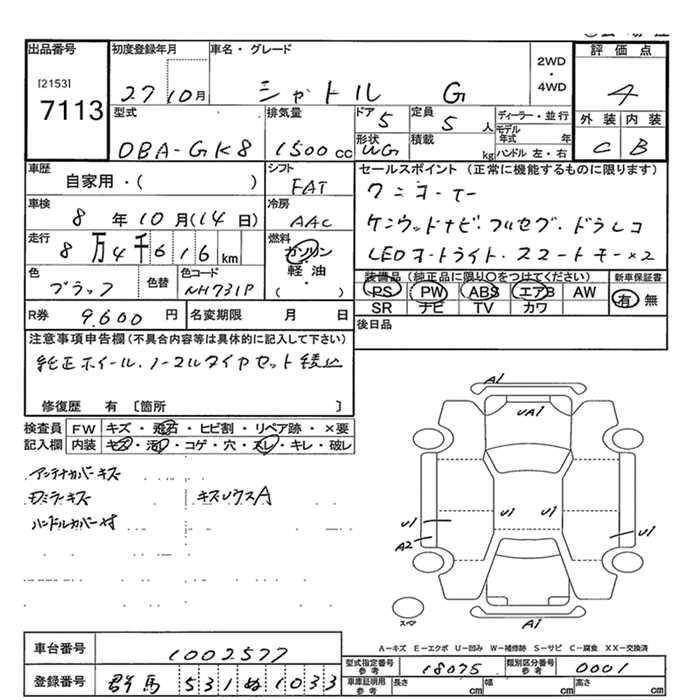 出品番号
[2153]
7113
初度登録年月
27 10月
車名・グレード
シャトル G
2WD
・
4WD
評価点
4
外装 内装
C B
型式
DBA-GK8
排気量
1500cc
ドア
5
定員
5人
ディーラー・並行
モデル年式 年
ハンドル 左・右
形状
WG
積載
kg
車歴
自家用・( )
シフト
FAT
車検
8年10月(14日)
冷房
AAC
走行
8万4千616km
燃料
ガソリン
・
軽油
( )
色
ブラック
色替
色コード
NH731P
R券
9.600円
名変期限 月 日
セールスポイント(正常に機能するものに限ります)
ワンオーナー
ケンウッドナビ・フルセグ・ドラレコ
LEDオートライト・スマートキー×2
装備品(純正品に限り○をつけてください)
PS PW ABS エアB AW
SR ナビ TV カワ
新車保証書
有 無
後日品
注意事項申告欄(不具合内容等は具体的に記入して下さい)
純正ホイール・ノーマルタイヤセット積込
修復歴 有 [箇所 ]
検査員 FW キズ・飛石・ヒビ割・リペア跡・×要
記入欄 内装 キズ・汚れ・コゲ・穴・スレ・キレ・破レ
アンテナカバーキズ
Dミラーキズ
キズU ウスA
ハンドルカバー付
A1
UA1
U1 U1
U1
A2
U1
A1
スペア
A-キズ E-エクボ U-凹み W-補修跡 S-サビ C-腐食 XX-交換済
車台番号
1002577
登録番号
群馬 531 ぬ 1033
型式指定番号
参考
18075
類別区分番号
参考
0001
車庫証明用
参考
長さ cm 幅 cm 高さ cm